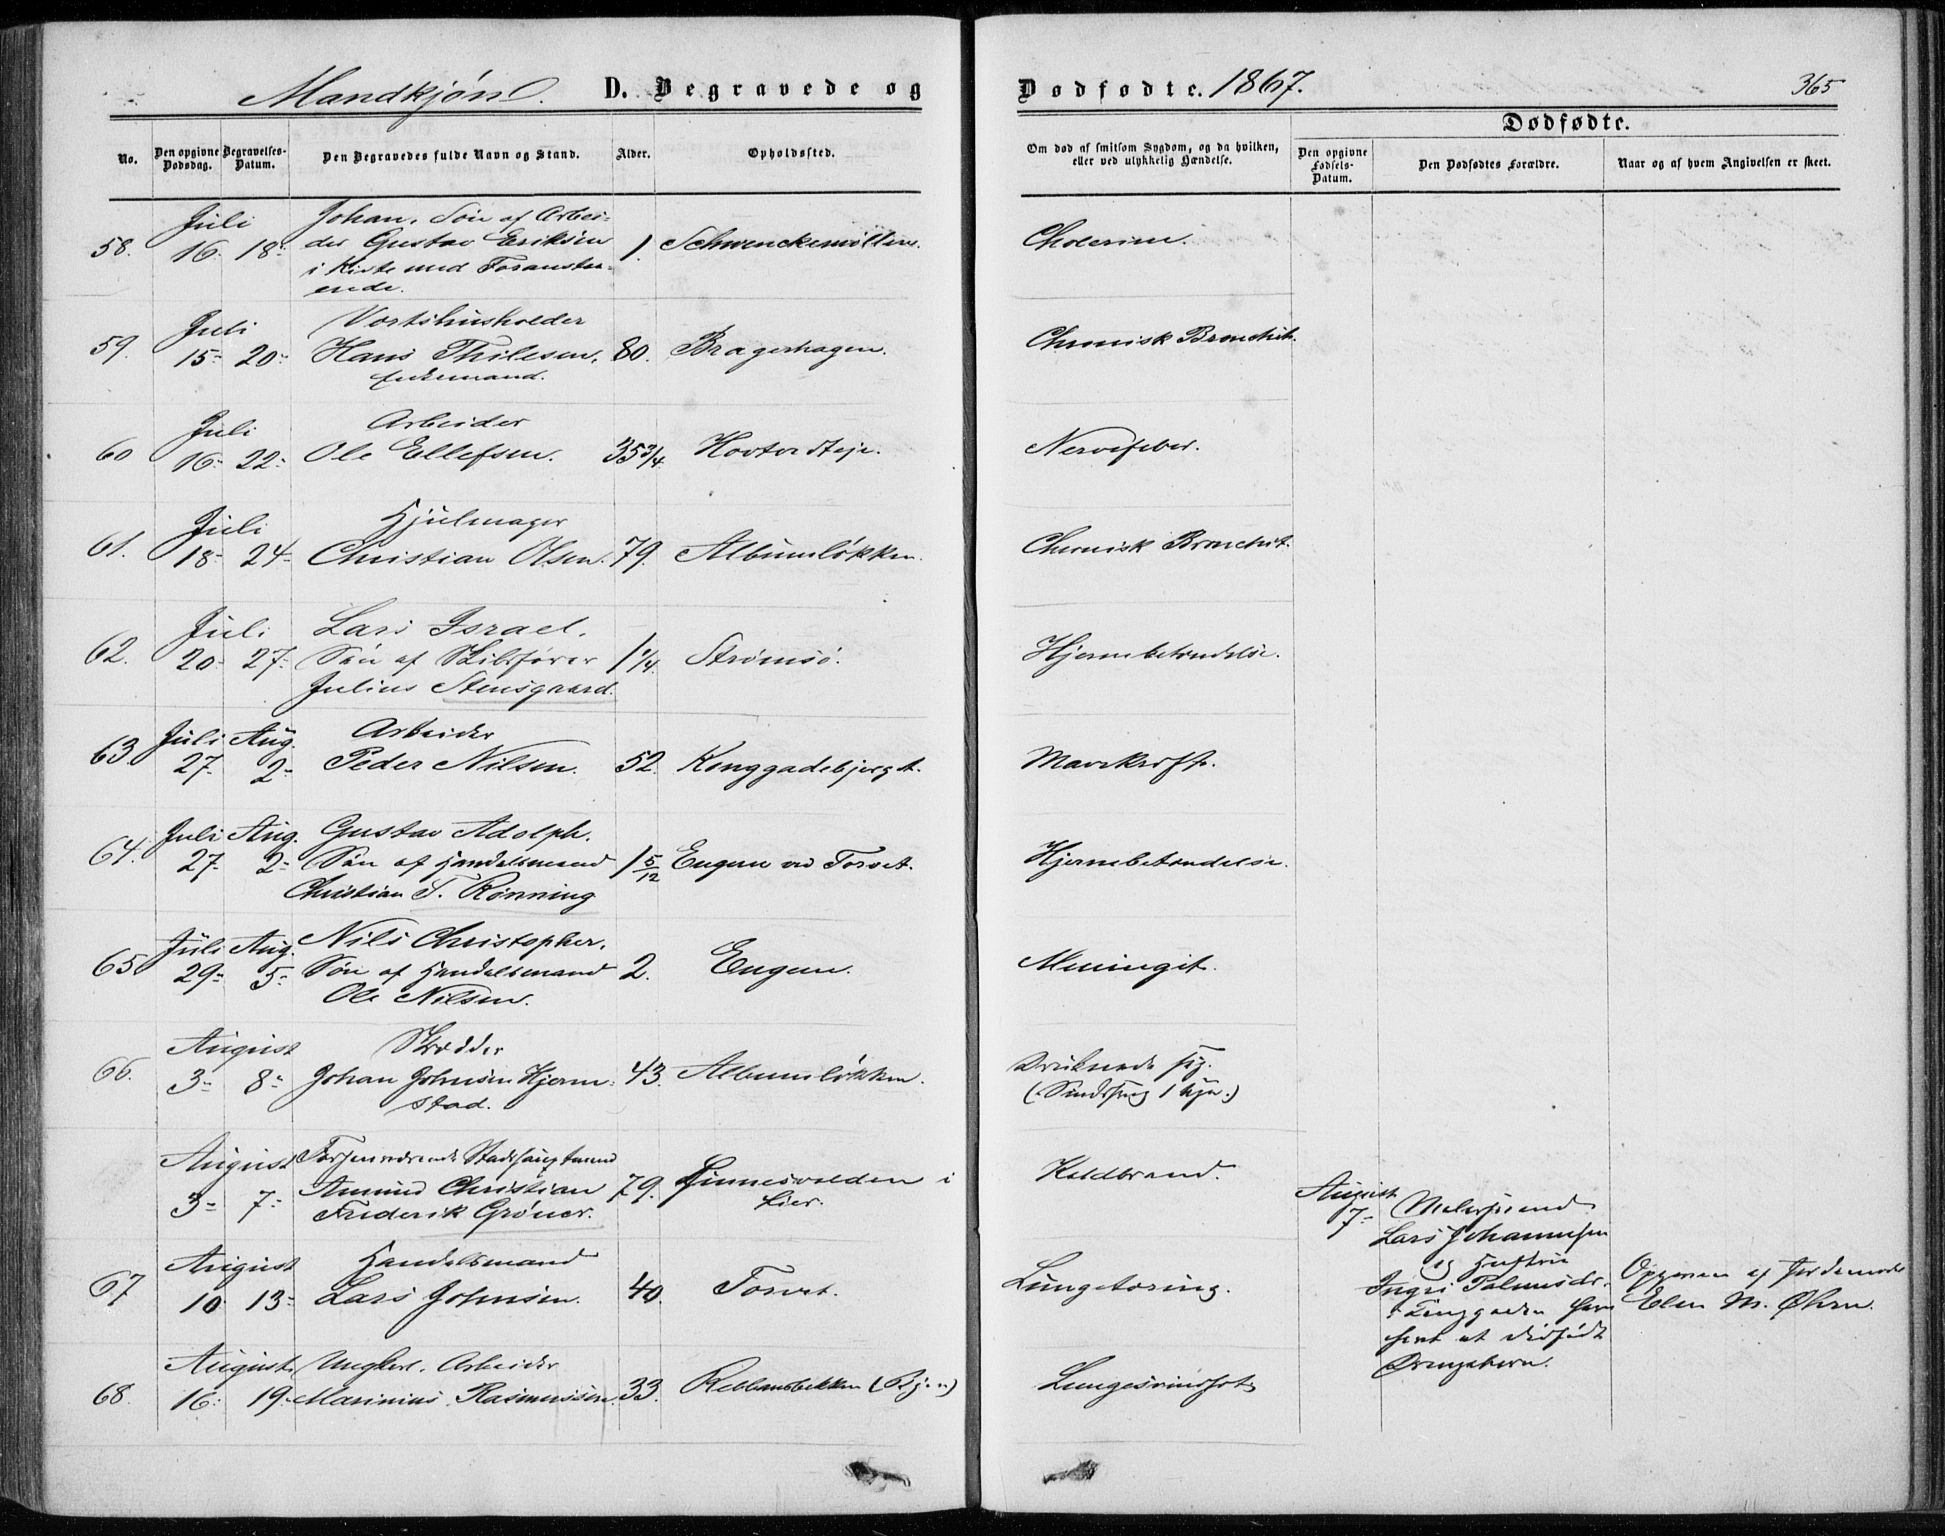 Mandkjøn. D. Begravede og Dødfødte. 1867. 365
No. Den opgivne Dødsdag. Begravelses-Datum. Den Begravedes fulde Navn og Stand. Alder. Opholdssted. Om død af smitsom Sygdom, og da hvilken, eller ved ulykkelig Hændelse. Dødfødte.
Den opgivne Fødsels-Datum. Den Dødfødtes Forældre. Naar og af hvem Angivelsen er skeet.
Juli Johan, Søn af Arbei-
58. 16. 18- der Gustav Eriksen 1. Cholerine.
i Kiste med Foranstaa-
ende.
Juli
59. 15- 20- Hans Thilesen, 80. Bragerhagen. Chronisk Bronchit.
Enkemand.
Juli Arbeider
60 16- 22- Ole Ellefsen. 35 3/4. Nervefeber.
Juli Hjulmager
61. 18- 24- Christian Olsen. 79. Albumløkken. Chronisk Bronchit.
Juli Lars Israel,
62. 20- 27- Søn af Skibsfører 1 1/4. Strømsø. Hjernebetændelse.
Julius Stensgaard.
Juli Aug. Arbeider
63. 27- 2- Peder Nilsen. 52. Konggadebjerget. Mavekræft.
Juli Aug. Gustav Adolph.
64. 27- 2- Søn af Handelsmand 1 5/12 Engen ved Torvet. Hjernebetændelse.
Christian T. Rønning
Juli Aug. Nils Christopher,
65 29- 5- Søn af Handelsmand 2. Engen. Meningit.
Ole Nilsen.
August Skrædder
66. 3- 8- Johan Johnsen Hjerm- 43. Albumløkken. Druknede sig.
stad. (Sindssvag
August Forhenværende Stadshauptmand
3- 7- Amund Christian 79. Linnesvolden i Lier. Koldbrand.
Frederik Grøner.
August
7-
Lars Johannesen
og Hustru
August Handelsmand
67 10- 13- Lars Johnsen. 40. Torvet. Lungetæring.
Opgiven af Jordemoder
Elen M. Øhrn.
født et dødfødt
Drengebarn.
August Ungkarl, Arbeider
68. 16- 19- Marinius Rasmussen. 33. Lungesvindsot